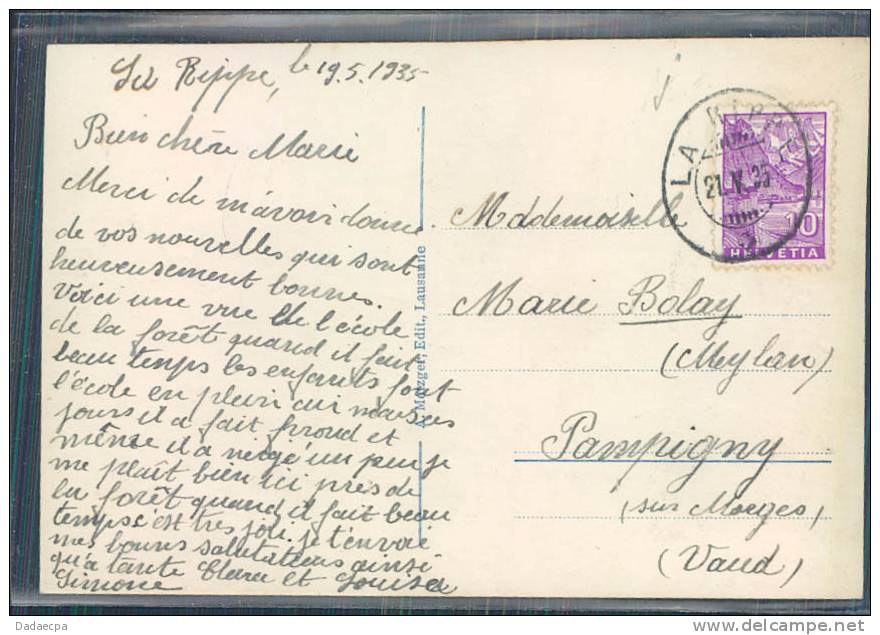 La Rippe, le 19.5.1935
Bien chère Marie
Merci de m'avoir donné
de vos nouvelles qui sont
heureusement bonnes.
Voici une vue de l'école
de la forêt quand il fait
beau temps les enfants font
l'école en plein air mais ces
jours il a fait froud et
même il a neigé un peu je
me plaît bien ici près de
la forêt quand il fait beau
temps c'est très joli. je t'envoi
mes bonnes salutations ainsi
qu'a tante Clara et Louisa
Simone
A. Metzger, Edit., Lausanne
LA RIPPE
21.V.35
10
HELVETIA
Mademoiselle
Marie Bolay
(Meylan)
Pampigny
(sur Morges)
(Vaud)
Dadaecpa
www.delcampe.net